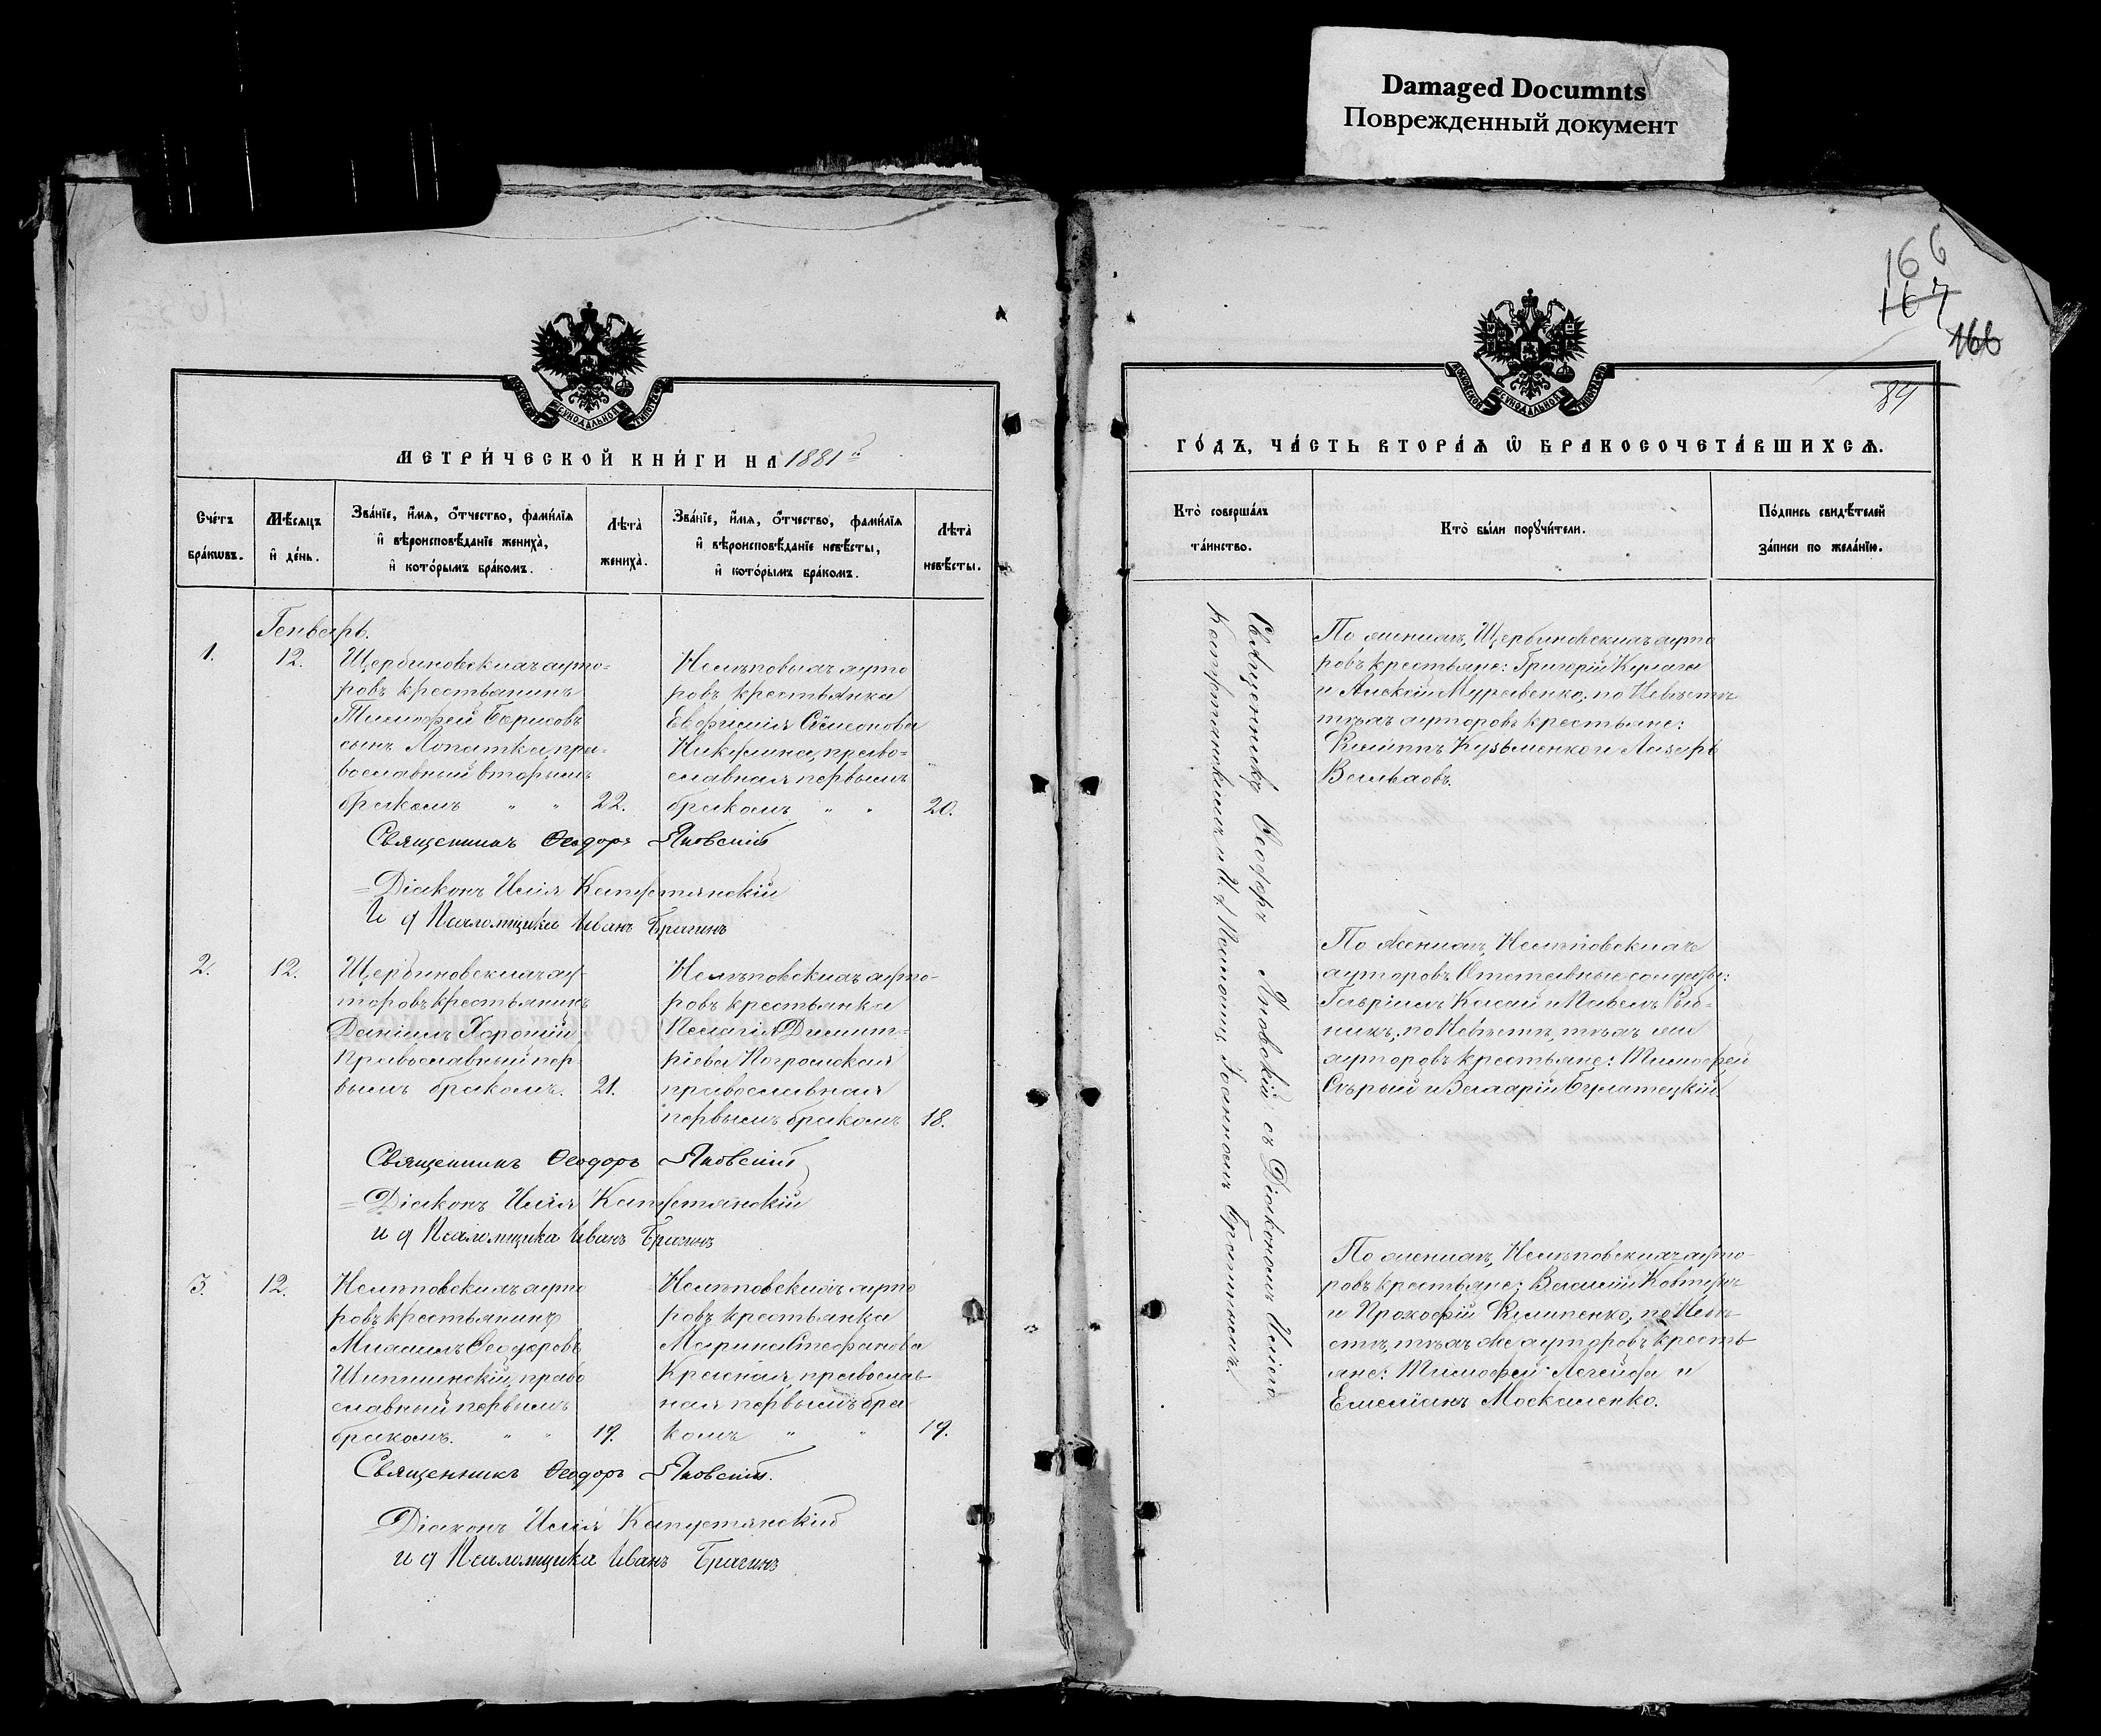 Damaged Documnts
Поврежденный документ
166
167
166
84
МЕТРИ́ЧЕСКОЙ КНИ́ГИ НА 1881й
Сче́тъ бра́кѡвъ.
Мѣ́сяцъ и҆ де́нь.
Зва́нїе, и҆́мѧ, ѻ҆́тчество, фами́лїѧ
и҆ вѣроисповѣ́данїе жениха̀,
и҆ кото́рымъ бра́комъ.
Лѣта̀ жениха̀.
Зва́нїе, и҆́мѧ, ѻ҆́тчество, фами́лїѧ
и҆ вѣроисповѣ́данїе невѣ́сты,
и҆ кото́рымъ бра́комъ.
Лѣта̀ невѣ́сты.
Генварь.
1.
12.
Щербиновскихъ хуто-
ровъ крестьянинъ
Тимофей Борисовъ
сынъ Лопатка, пра-
вославный вторымъ
бракомъ " "
22.
хуто
ровъ крестьянка
Евфимія Сѵмеонова
Никулина, право-
славная первымъ
бракомъ " "
20.
Священникъ Ѳеодоръ Яновскій
Діаконъ Илія Капустянскій
И д Псаломщика Иванъ Брагинъ
2.
12.
Щербиновскихъ ху-
торовъ крестьянинъ
Даніилъ Хорошій
Православный пер-
вымъ бракомъ.
21.
Нелѣповскихъ хуто-
ровъ крестьянка
Пелагія Димит-
ріева Погромская
православная
первымъ бракомъ
18.
Священникъ Ѳеодоръ Яновскій
Діаконъ Илія Капустянскій
и д Псаломщика Иванъ Брагинъ
3.
12.
Нелѣповскихъ хуто
ровъ крестьянинъ
Михаилъ Ѳеодоровъ
право
славный первымъ
бракомъ. " "
19.
Нелѣповскихъ хуто
ровъ крестьянка
Марина Стефанова
Красная, православ-
ная первымъ бра
комъ " "
19.
Священникъ Ѳеодоръ Яновскій.
Діаконъ Илія Капустянскій
и д Псаломщика Иванъ Брагинъ
ГО́ДЪ, ЧА́СТЬ ВТОРА́Ѧ Ѡ҆ БРАКОСОЧЕТА́ВШИХСѦ.
Кто̀ соверша́лъ та́инство.
Кто̀ бы́ли порꙋчи́тели.
По́дпись свидѣ́телей
за́писи по жела́нїю.
Священникъ Ѳеодоръ Яновскій съ Діакономъ Иліею
Капустянскимъ и И. д Псаломщ. Іоанномъ Брагинымъ.
По женихѣ, Щербиновскихъ хуто
ровъ крестьяне: Григорій Кулага
и Алексій Муравенко; по Невѣстѣ
тѣхъ хуторовъ крестьяне:
Филиппъ Кузьменко и Лазарь
По женихѣ, Нелѣповскихъ
хуторовъ Отставные солдаты:
Гавріилъ Касай и Павелъ
по Невѣстѣ, тѣхъ же
хуторовъ крестьяне: Тимофей
Сѣрый и
По женихѣ, Нелѣповскихъ хуто-
ровъ крестьяне: Василій Ковтунъ
и Прокофій Филипенко; по Невѣ-
стѣ, тѣхъ же хуторовъ кресть-
яне: Тимофей Легейда и
Емеліянъ Москаленко.